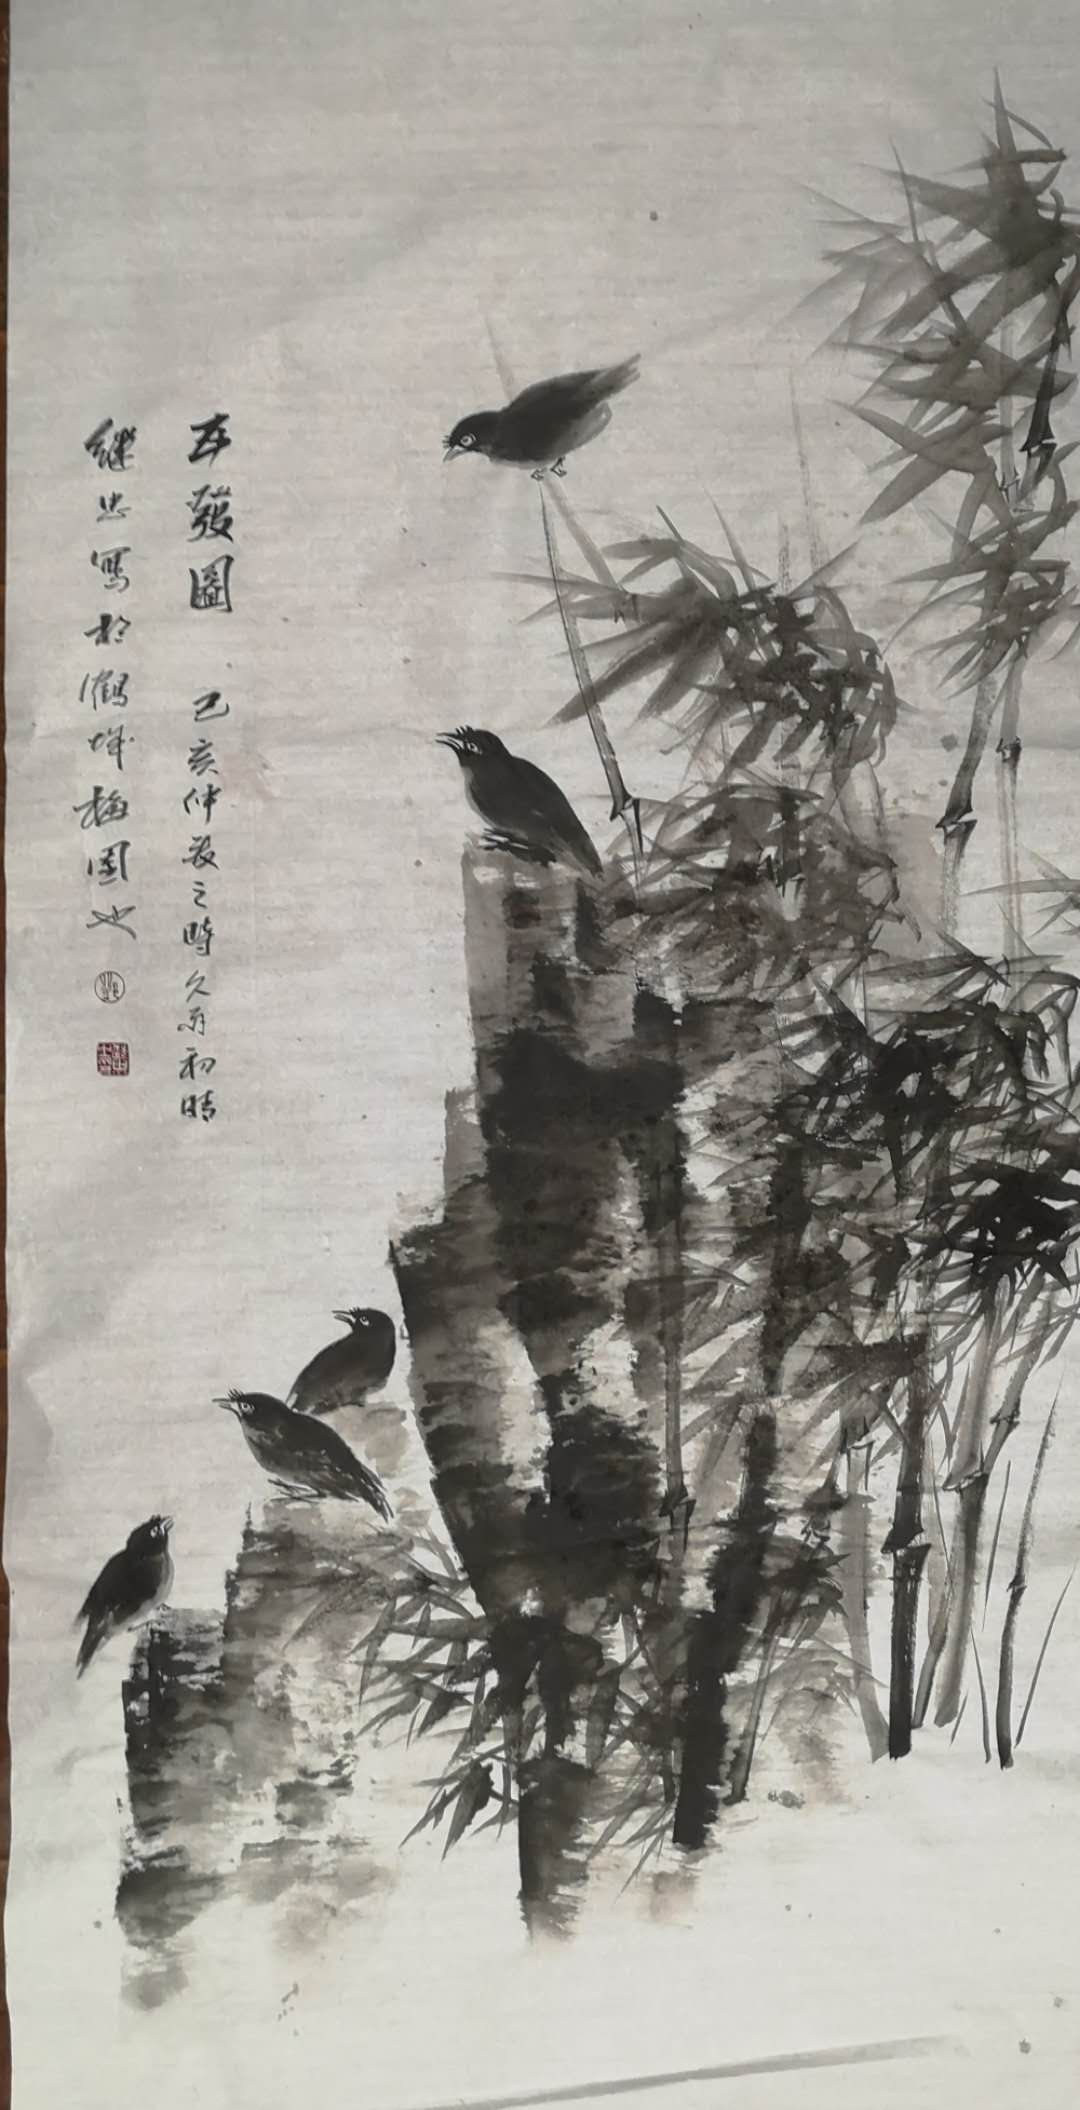 五發圖 己亥仲夏之時久雨初晴
继忠寫於鶴城梅園也